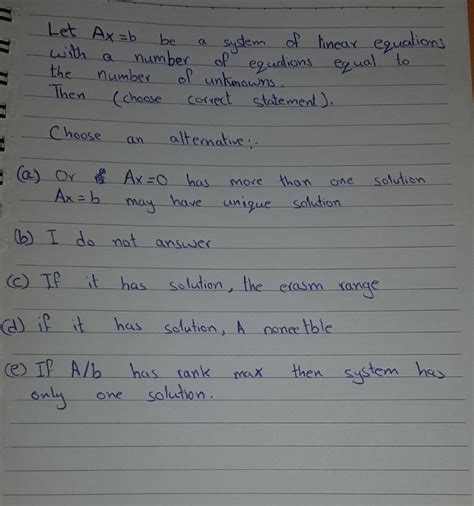 Let Ax=b be a system of linear equations
with a number of equations equal to
the number of unknowns.
Then (choose correct statement).
Choose an alternative:-
(a) Or Ax=0 has more than one solution
Ax=b may have unique solution
(b) I do not answer
(c) If it has solution, the erasm range
(d) if it has solution, A noneetble
(e) If A/b has rank max then system has
only one solution.